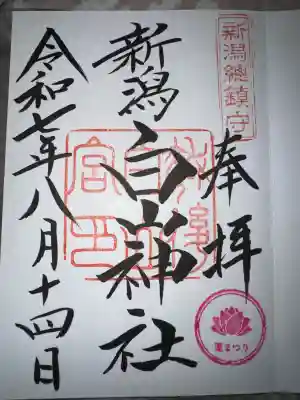 新潟總鎮守
奉拝
新潟白山神社
令和七年八月十四日
蓮まつり